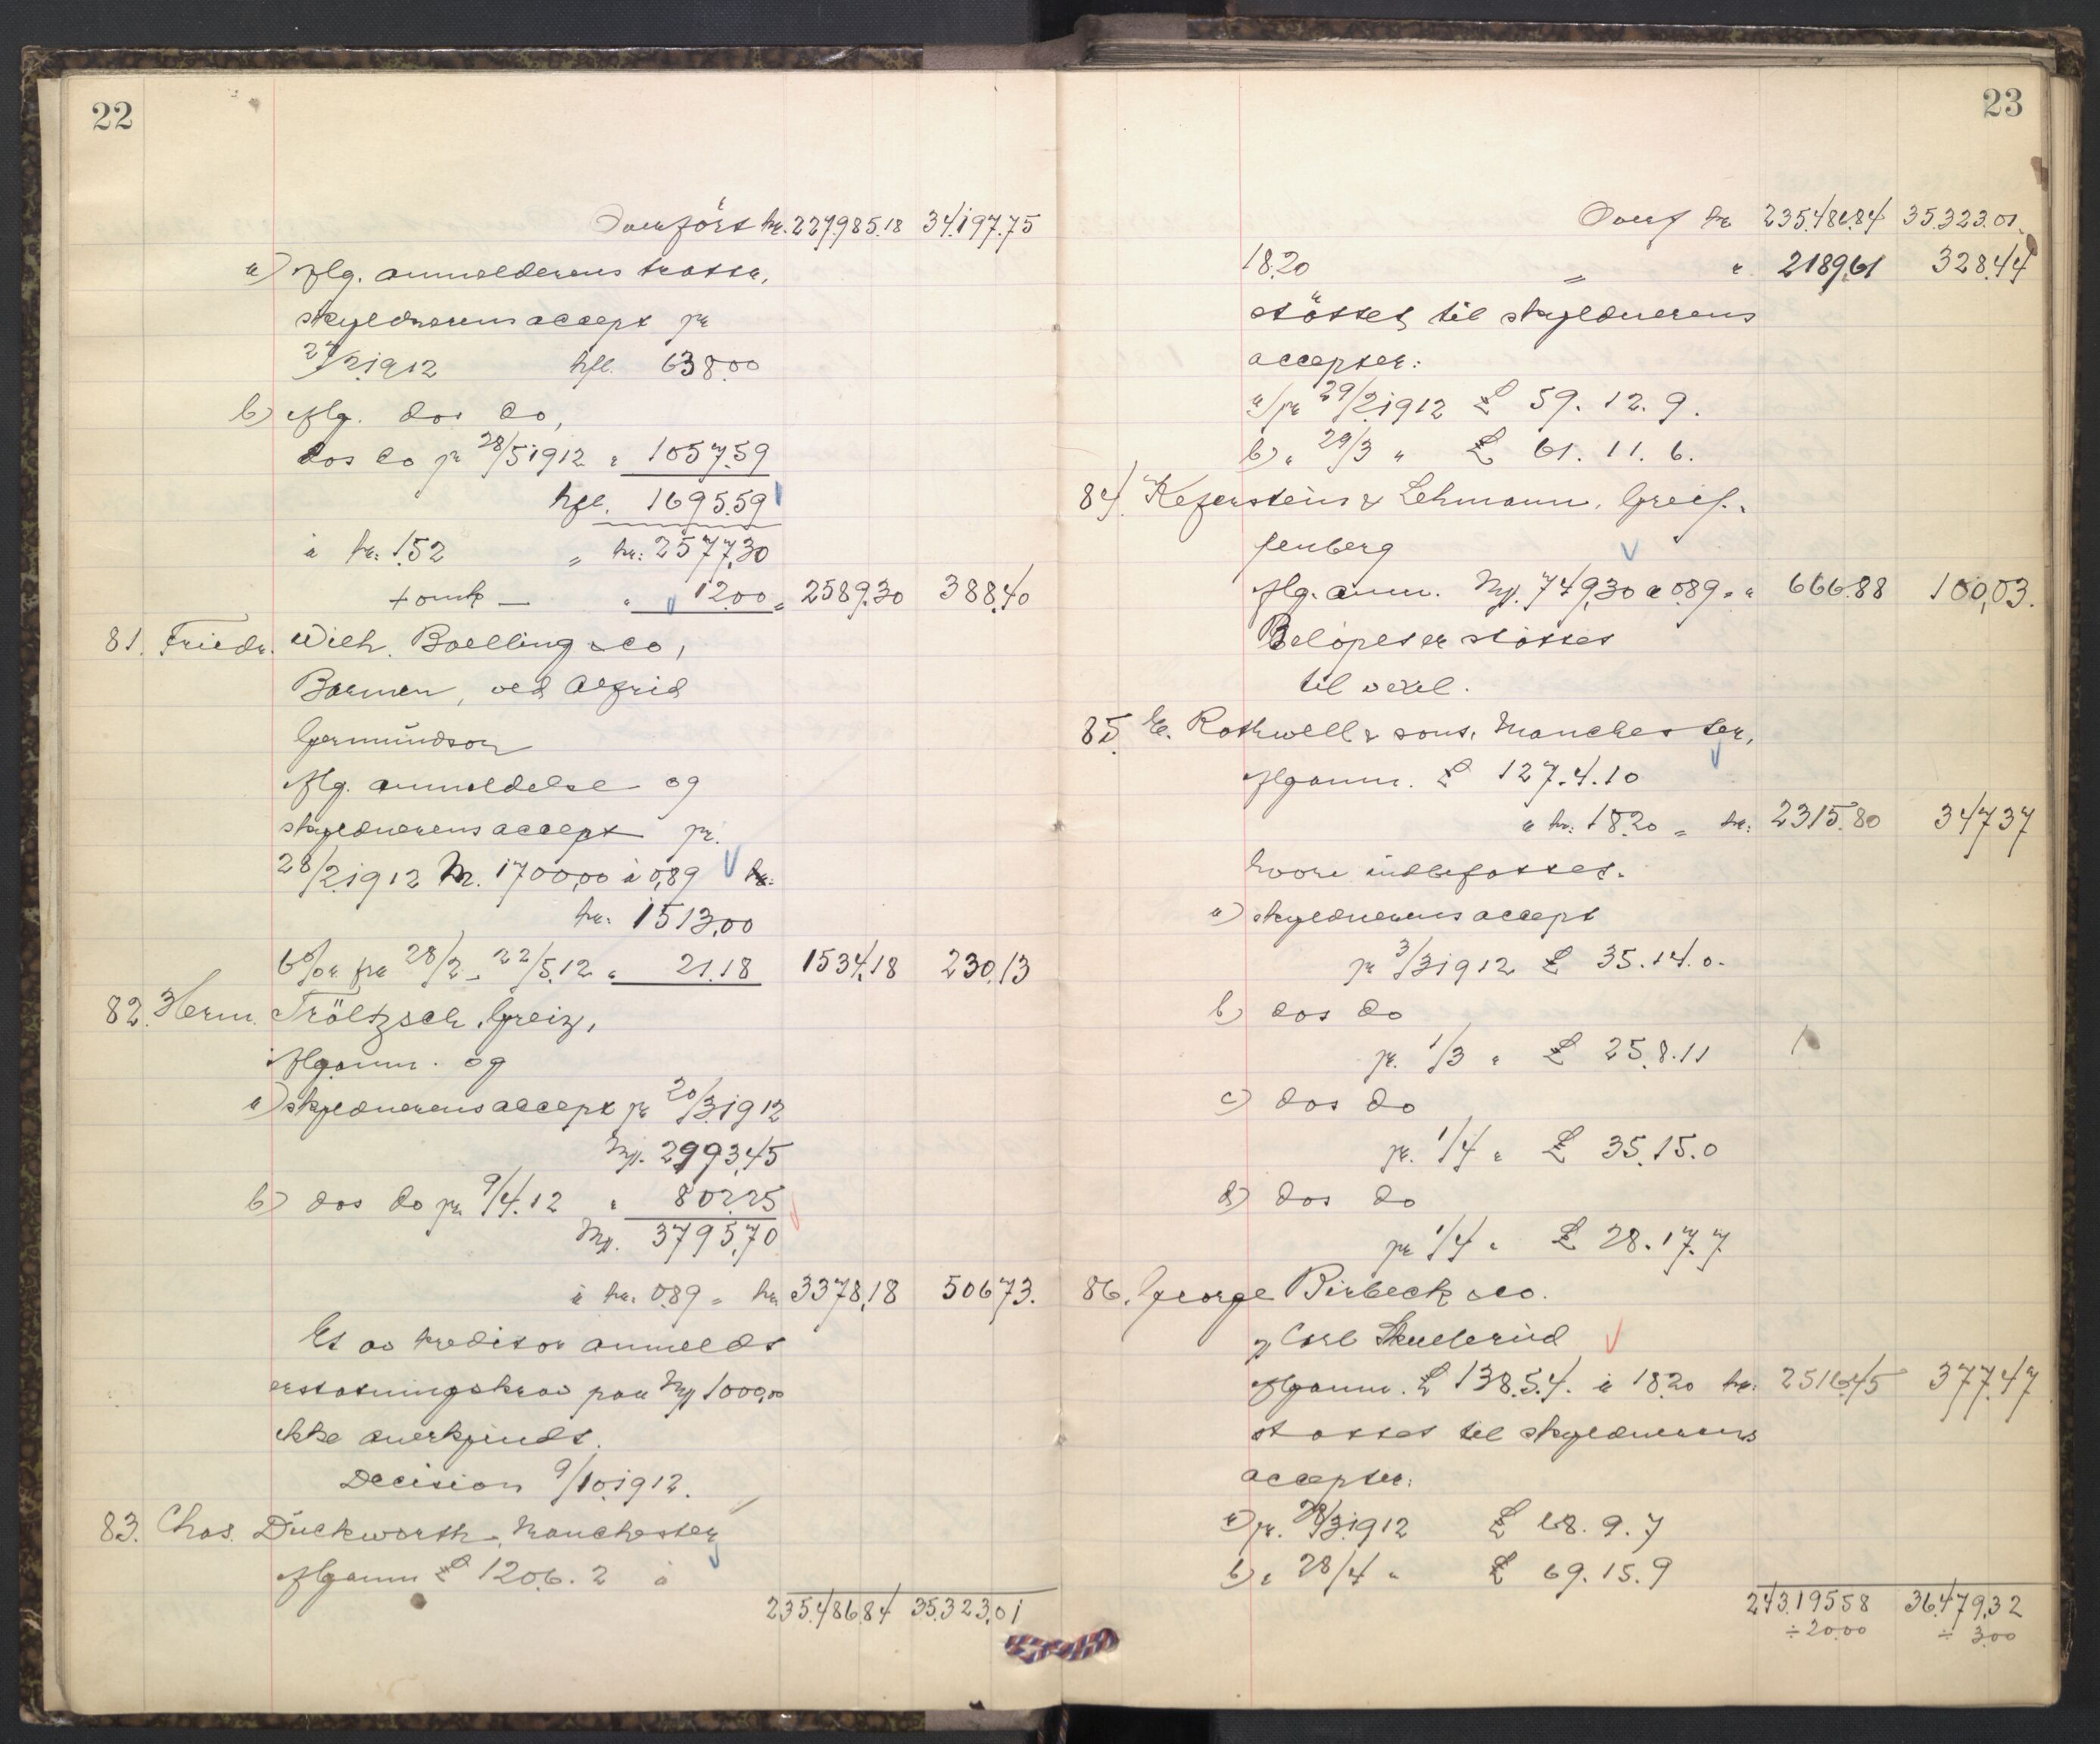 22
Overført kr. 227.985.18 34.197.75
a) Iflg. anmelderens tratta,
skyldnerens accept pr
27/2 1912 hfl. 638.00
b) Iflg. dos do,
dos do pr 28/5 1912 " 1057.59
hfl. 1695.59
à kr. 1.52 = kr: 2577,30
+ omk — " 12.00 = 2589.30 388,40
81. Friedr. Wilh. Boelling & Co,
Barmen, ved Alfrid
Germundson
Iflg. anmeldelse og
skyldnerens accept pr.
28/2 1912 M. 1700,00 à 0,89 kr.
kr. 1513,00
6% r fra 28/2 - 22/5.12 " 21.18 1534,18 230,13
82. Herm. Tröltzsch, Greiz,
Iflg anm. og
a) skyldnerens accept pr 20/3 1912
M. 2993,45
b) dos do pr. 9/4.12 " 802.25
M. 3795,70
à kr. 0.89 = kr. 3378,18 506,73.
Et av kreditor anmeldt
erstatningskrav paa M 1000,00
ikke anerkjendt.
Decision 9/10.1912.
83. Chas. Duckworth, Manchester
Iflg anm £ 120.6.2 à
235.486.84 35.323,01
23
Overf kr 235.486.84 35.323.01.
18.20 = " 2189,61 328.44
støttet til skyldnerens
accepter:
a) pr 29/2 1912 £ 59. 12. 9.
b) " 29/3 " £ 61. 11. 6.
84. Keferstein & Lehmann, Greif-
fenberg
Iflg. anm. M. 749,30 à 0.89 = " 666.88 100,03.
Beløpet er støttet
til vexel.
85. E. Rothwell & sons, Manchester,
Iflg anm. £ 127.4.10
à kr. 18.20 = kr: 2315.80 347.37
hvori indbefattes.
a) skyldnerens accept
pr 3/3 1912 £ 35.14.0.
b) dos do
pr. 1/3 " £ 25.8.11
c) dos do
pr. 1/4 " £ 35.15.0
d) dos do
pr 1/4 " £ 28.17.7
86. George Birbeck & Co.
v/ Carl Skullerud
Iflg anm. £ 138.5.4. à 18.20 kr. 2516.45 377.47
støttet til skyldnerens
accepter:
a) pr. 28/3 1912 £ 68. 9. 7
b) " 28/4 " £ 69. 15. 9
243.195.58 36.479,32
÷ 20.00 ÷ 3.00